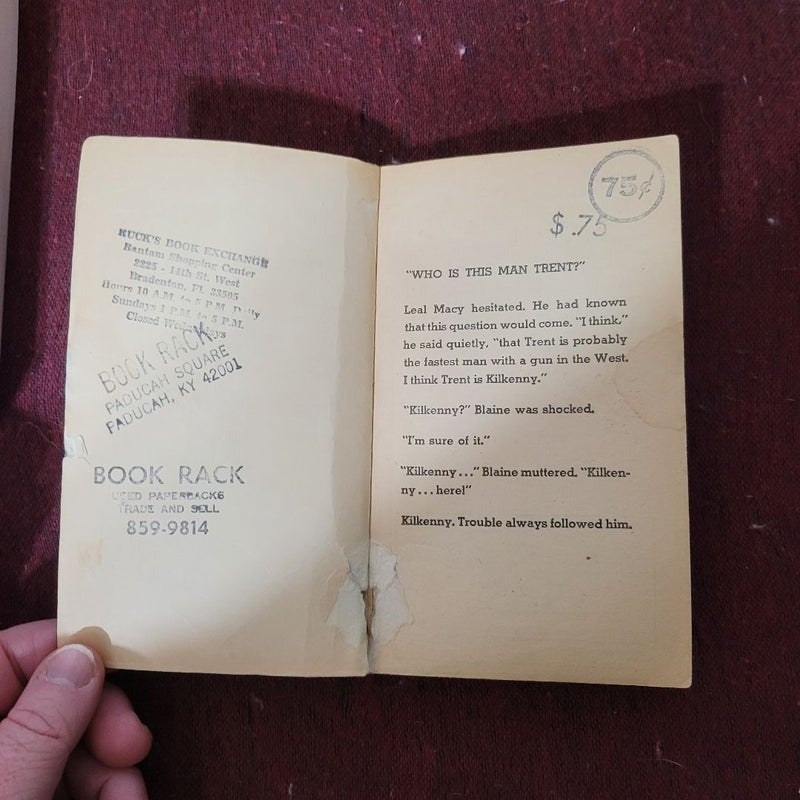 RUCK'S BOOK EXCHANGE
Bantam Shopping Center
2225 - 14th St. West
Bradenton, FL 33505
Hours 10 A.M. to 5 P.M. Daily
Sundays 1 P.M. to 5 P.M.
Closed Wednesdays
BOOK RACK
PADUCAH SQUARE
PADUCAH, KY 42001
BOOK RACK
USED PAPERBACKS
TRADE AND SELL
859-9814
75¢
$.75
"WHO IS THIS MAN TRENT?"
Leal Macy hesitated. He had known
that this question would come. "I think,"
he said quietly, "that Trent is probably
the fastest man with a gun in the West.
I think Trent is Kilkenny."
"Kilkenny?" Blaine was shocked.
"I'm sure of it."
"Kilkenny..." Blaine muttered. "Kilken-
ny...here!"
Kilkenny. Trouble always followed him.